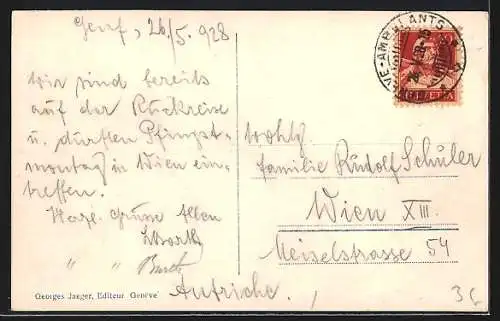 Genf, 26/5. 1928
wir sind bereits
auf der Rückreise
u. dürften Pfingst-
montag in Wien ein-
treffen.
Herzl. Grüsse Allen
" "
Autriche.
Georges Jaeger, Editeur Genève
VE-AMBULANTS
HELVETIA
Wohlg
Familie Rudolf Schüler
Wien XIII.
Meiselstrasse 54